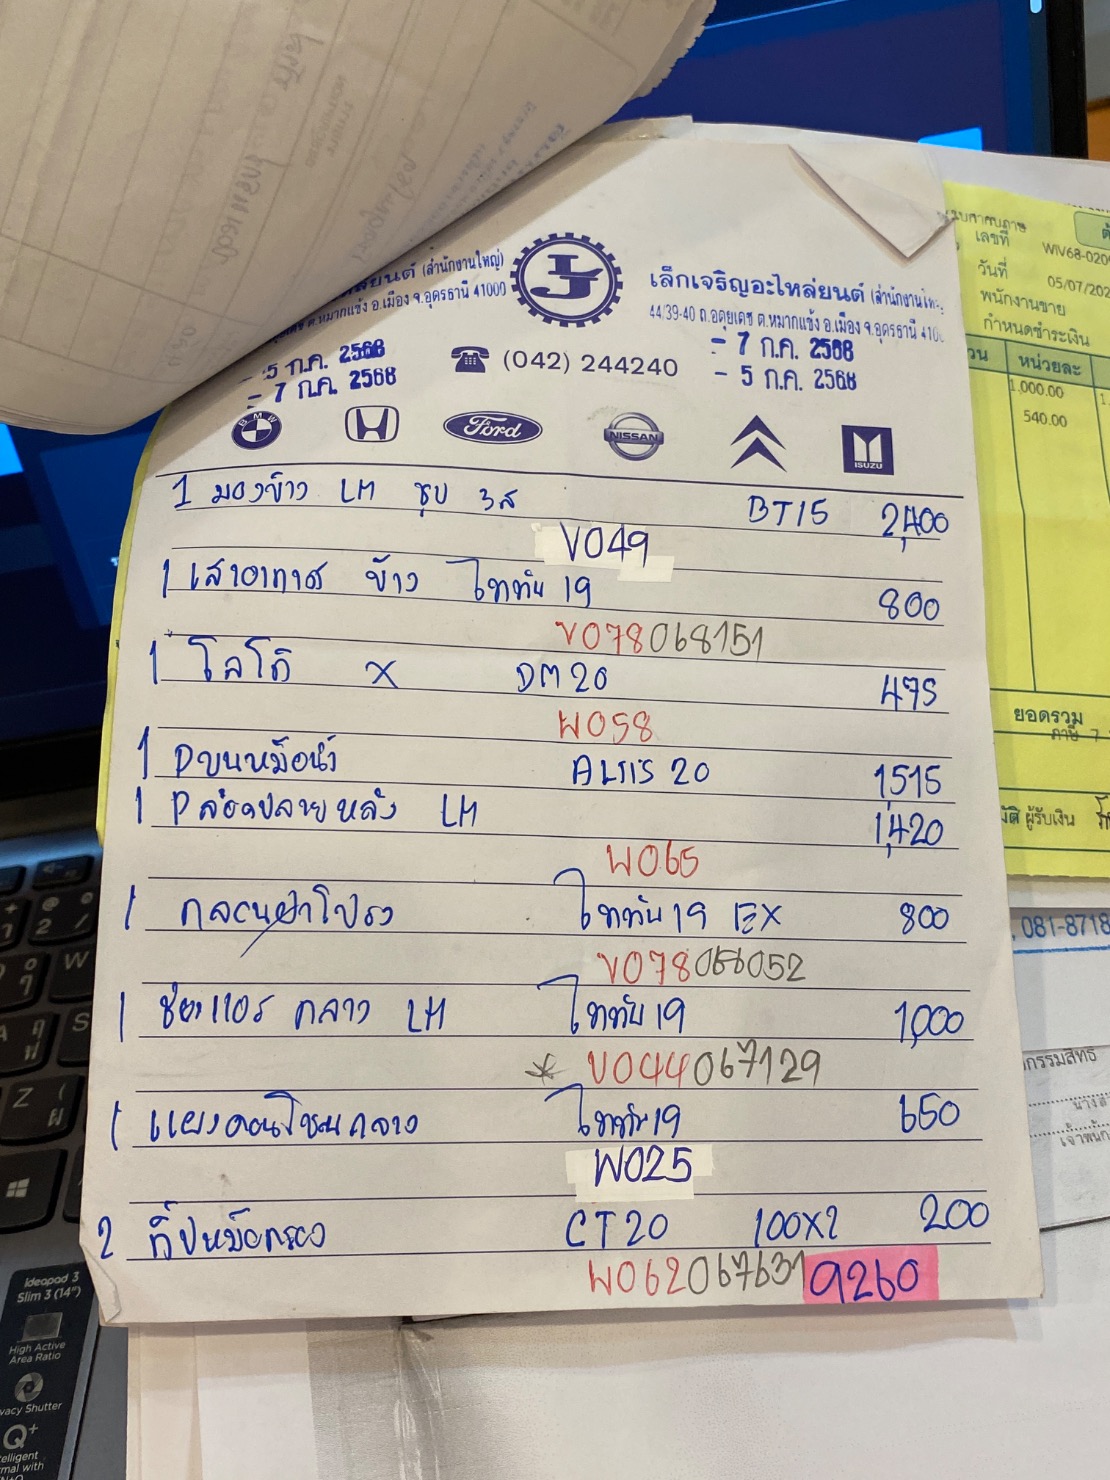 ล้อยนต์ (สำนักงานใหญ่)
ต.หมากแข้ง อ.เมือง จ.อุดรธานี 41000
เล็กเจริญอะไหล่ยนต์ (สำนักงานใหญ่)
44/39-40 ถ.อดุยเดช ต.หมากแข้ง อ.เมือง จ.อุดรธานี 4100
- 5 ก.ค. 2568
- 7 ก.ค. 2568
(042) 244240
- 7 ก.ค. 2568
- 5 ก.ค. 2568
BMW
Ford
NISSAN
ISUZU
1 มองข้าง LM ชุบ 3ส BT15 2,400
V049
1 เสาอากาศ ข้าง ไททัน 19 800
V078068151
1 โลโก้ X DM20 475
W058
1 Pบนหม้อน้ำ ALTIS 20 1515
1 Pล่องปลายหลัง LM 1,420
W065
1 กลอนฝาโปรง ไททัน 19 EX 800
V078068052
1 ช่องแอร์ กลาง LM ไททัน 19 1,000
* V044067129
1 แผงคอนโซนกลาง ไททัน 19 650
W025
2 กิ๊ปหม้อกรอง CT20 100X2 200
W062067631 9260
เลขที่ WIV68-020
วันที่ 05/07/202
พนักงานขาย
กำหนดชำระเงิน
หน่วยละ
1,000.00
540.00
ยอดรวม
ภาษี 7
ผู้รับเงิน
, 081-8718
กรรมสิทธิ์
นางส
เจ้าพนัก
Ideapad 3
Slim 3 (14")
High Active
Area Ratio
vacy Shutter
Q+
telligent
rmal with